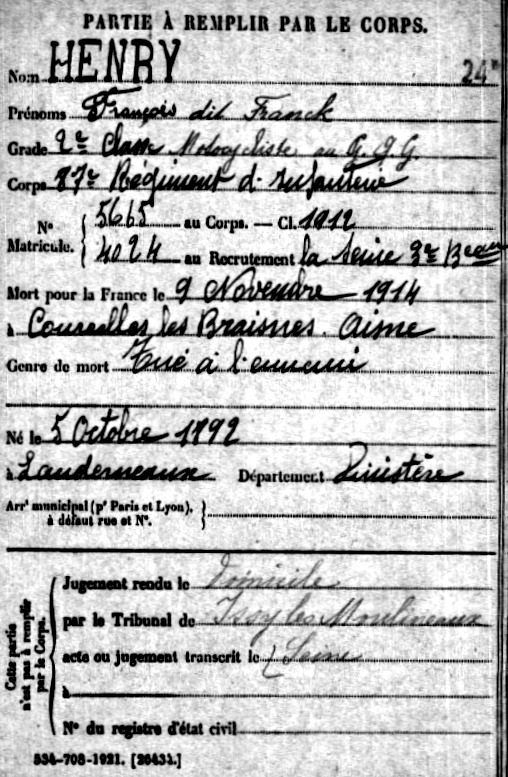 PARTIE À REMPLIR PAR LE CORPS.
Nom HENRY 24
Prénoms François dit Franck
Grade 2e Classe Motocycliste au G. Q. G.
Corps 87e Régiment d'Infanterie
N° Matricule. { 5665 au Corps. — Cl. 1912
4024 au Recrutement la Seine 3e Beau
Mort pour la France le 9 Novembre 1914
à Courcelles les Braisnes. Aisne
Genre de mort Tué à l'ennemi
Né le 5 Octobre 1892
à Landerneaux Département Finistère
Arrt municipal (pr Paris et Lyon), à défaut rue et N°. }
Cette partie n'est pas à remplir par le Corps.
Jugement rendu le Domicile
par le Tribunal de Issy les Moulineaux
acte ou jugement transcrit le Seine
à
N° du registre d'état civil
534-708-1921. [26434.]